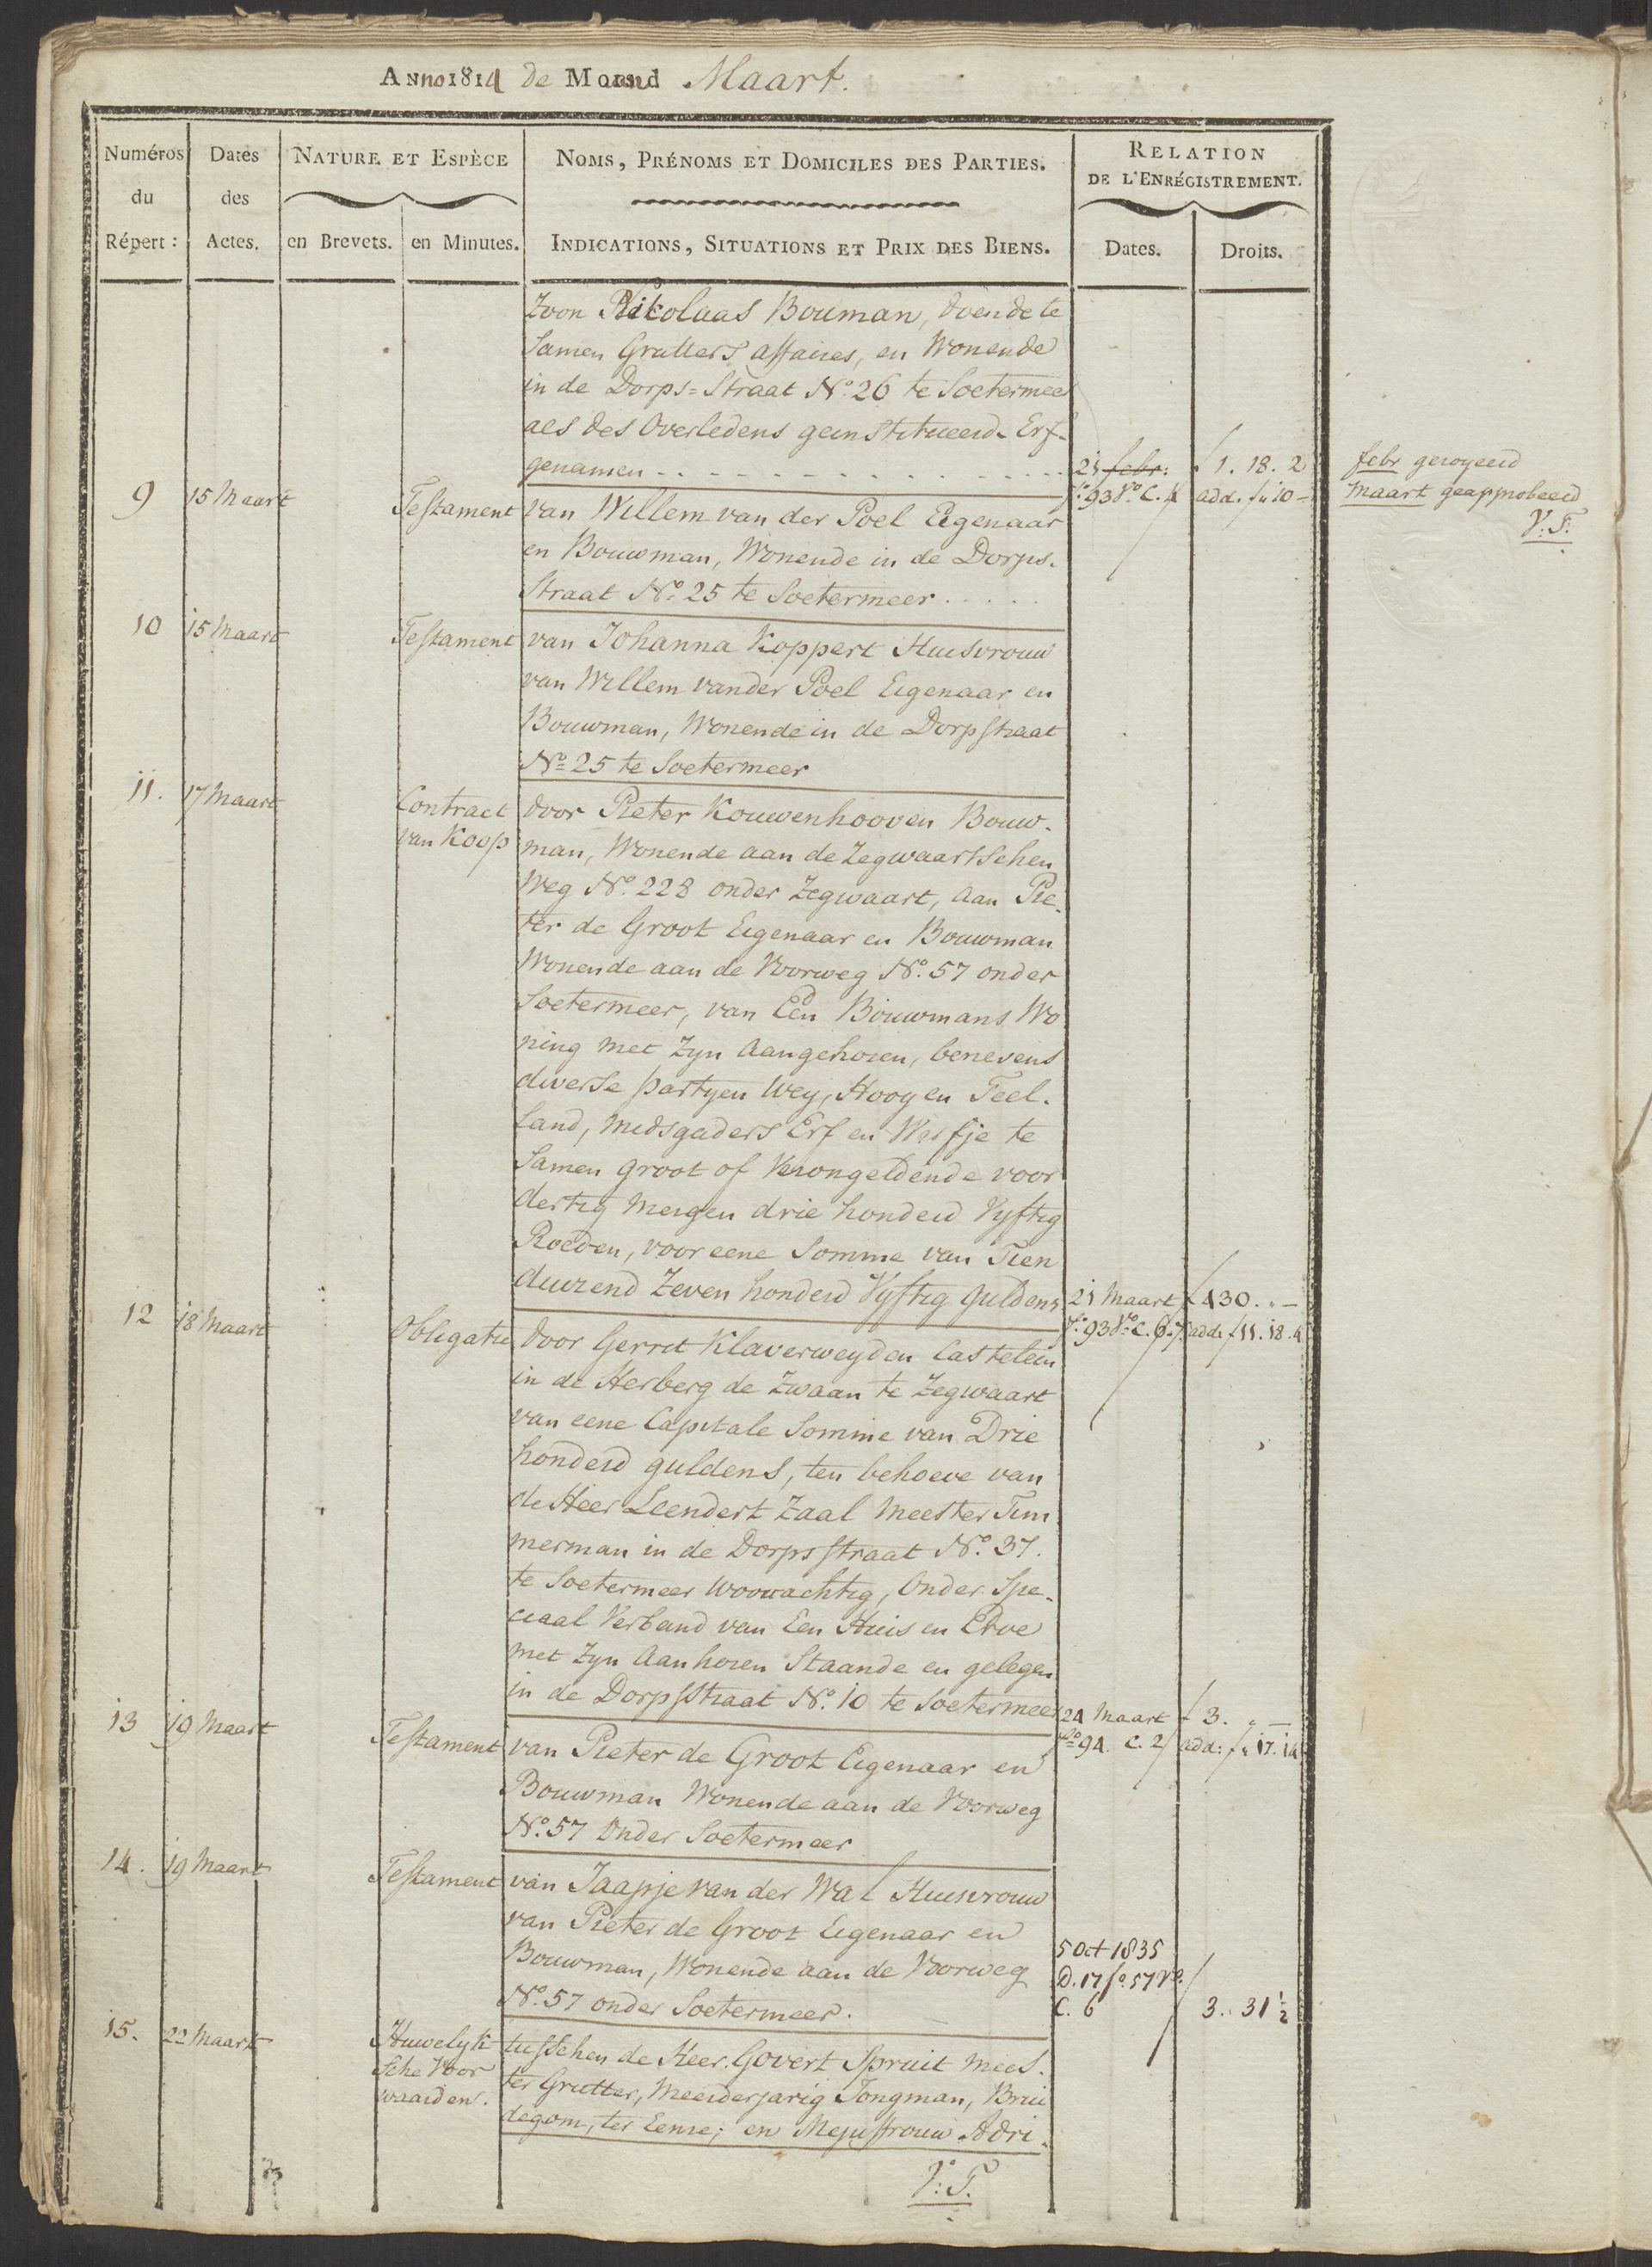 Anno 1814 de Maand Maart.
Numéros du Répert:
Dates des Actes.
NATURE ET ESPÈCE
en Brevets. en Minutes.
NOMS, PRÉNOMS ET DOMICILES DES PARTIES.
INDICATIONS, SITUATIONS ET PRIX DES BIENS.
RELATION
DE L'ENRÉGISTREMENT.
Dates. Droits.
Zoon Nikolaas Bouman, doende te
Samen Grutters affaires, en Wonende
in de Dorps=Straat No. 26 te Soetermeer
als des Overledens geinstitueerde Erf-
genamen
21 febr: f 1. 18. 2
fo. 93 Vo. C. 4 add. f " 10 -
febr geroyeerd
maart geapprobeerd
V:T:
9 15 Maart Testament van Willem van der Poel Eigenaar
en Bouwman, Wonende in de Dorps.
Straat No. 25 te Soetermeer
10 15 Maart Testament van Johanna Koppert Huisvrouw
van Willem vander Poel Eigenaar en
Bouwman, Wonende in de Dorpstraat
No. 25 te Soetermeer
11. 17 Maart Contract van Koop door Pieter Kouwenhooven Bouw-
man, Wonende aan de Zegwaartschen
Weg No. 228 onder Zegwaart, aan Pie-
ter de Groot Eigenaar en Bouwman
Wonende aan de Voorweg No. 57 onder
Soetermeer, van Een Bouwmans Wo
ning met Zyn aangehoren, benevens
diverse partyen Wey, Hooy en Teel-
land, midsgaders Erf en Werfje te
Samen groot of Verongeldende voor
dertig Mergen drie honderd Vyftig
Roeden, voor eene Somme van Tien
duizend Zeven honderd Vyftig Guldens
21 Maart f 430. " -
fo. 93 Vo. C. 6.7. add. f 11. 18. 4
12 18 Maart Obligatie door Gerrit Klaverweyden Castelein
in de Herberg de Zwaan te Zegwaart
van eene Capitale Somme van Drie
honderd guldens, ten behoeve van
de Heer Leendert Zaal Meester Tim
merman in de Dorpsstraat No. 37.
te Soetermeer Woonachtig, Onder Spe-
ciaal Verband van Een Huis en Erve
met Zyn Aanhoren Staande en gelegen
in de Dorpsstraat No. 10 te Soetermeer
24 Maart f 3. " -
fo. 94. C. 2 add: f " 17. 14
13 19 Maart Testament van Pieter de Groot Eigenaar en
Bouwman Wonende aan de Voorweg
No. 57 Onder Soetermeer
14. 19 Maart Testament van Jaapje van der Wal Huisvrouw
van Pieter de Groot Eigenaar en
Bouwman, Wonende aan de Voorweg
No. 57 onder Soetermeer.
5 Oct 1835
D. 17 fo. 57 Vo.
C. 6 3. 31 1/2
15. 22 Maart Huwelyk sche Voor waarden. tusschen de Heer Govert Spruit Mees-
ter Grutter, Meerderjarig Jongman, Brui
degom, ter Eenre; en Mejuffrouw Adri-
V:T.